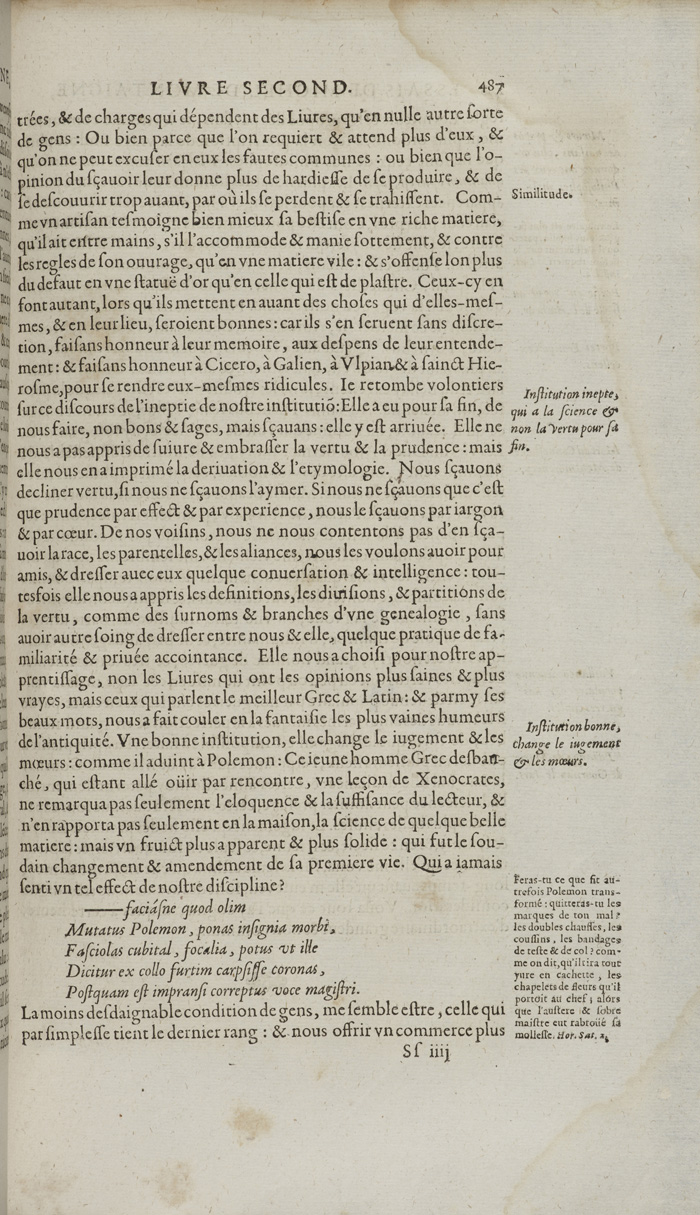 LIVRE SECOND. 487
trées, & de charges qui dépendent des Liures, qu'en nulle autre ſorte
de gens : Ou bien parce que l'on requiert & attend plus d'eux , &
qu'on ne peut excuſer en eux les fautes communes : ou bien que l'o-
pinion du ſçauoir leur donne plus de hardieſſe de ſe produire, & de
ſe deſcouurir trop auant, par où ils ſe perdent & ſe trahiſſent. Com-
me vn artiſan teſmoigne bien mieux ſa beſtiſe en vne riche matiere,
qu'il ait entre mains, s'il l'accommode & manie ſottement, & contre
les regles de ſon ouurage, qu'en vne matiere vile : & s'offenſe lon plus
du defaut en vne ſtatuë d'or qu'en celle qui eſt de plaſtre. Ceux-cy en
font autant, lors qu'ils mettent en auant des choſes qui d'elles-meſ-
mes, & en leur lieu, ſeroient bonnes : car ils s'en ſeruent ſans diſcre-
tion, faiſans honneur à leur memoire, aux deſpens de leur entende-
ment : & faiſans honneur à Cicero, à Galien, à Vlpian & à ſainct Hie-
roſme, pour ſe rendre eux-meſmes ridicules. Ie retombe volontiers
ſur ce diſcours de l'ineptie de noſtre inſtitutiõ: Elle a eu pour ſa fin, de
nous faire, non bons & ſages, mais ſçauans : elle y eſt arriuée. Elle ne
nous a pas appris de ſuiure & embraſſer la vertu & la prudence : mais
elle nous en a imprimé la deriuation & l'etymologie. Nous ſçauons
decliner vertu, ſi nous ne ſçauons l'aymer. Si nous ne ſçauons que c'eſt
que prudence par effect & par experience , nous le ſçauons par iargon
& par cœur. De nos voiſins, nous ne nous contentons pas d'en ſça-
uoir la race, les parentelles, & les aliances, nous les voulons auoir pour
amis, & dreſſer auec eux quelque conuerſation & intelligence : tou-
tesfois elle nous a appris les definitions, les diuiſions , & partitions de
la vertu , comme des ſurnoms & branches d'vne genealogie , ſans
auoir autre ſoing de dreſſer entre nous & elle, quelque pratique de fa-
miliarité & priuée accointance. Elle nous a choiſi pour noſtre ap-
prentiſſage, non les Liures qui ont les opinions plus ſaines & plus
vrayes, mais ceux qui parlent le meilleur Grec & Latin : & parmy ſes
beaux mots, nous a fait couler en la fantaiſie les plus vaines humeurs
de l'antiquité. Vne bonne inſtitution, elle change le iugement & les
mœurs : comme il aduint à Polemon : Ce ieune homme Grec deſbau-
ché, qui eſtant allé oüir par rencontre, vne leçon de Xenocrates,
ne remarqua pas ſeulement l'eloquence & la ſuffiſance du lecteur, &
n'en rapporta pas ſeulement en la maiſon, la ſcience de quelque belle
matiere : mais vn fruict plus apparent & plus ſolide : qui fut le ſou-
dain changement & amendement de ſa premiere vie. Qui a iamais
ſenti vn tel effect de noſtre diſcipline?
——faciáſne quod olim
Mutatus Polemon, ponas inſignia morbi,
Faſciolas cubital, focalia, potus vt ille
Dicitur ex collo furtim carpſiſſe coronas,
Poſtquam eſt impranſi correptus voce magiſtri.
La moins deſdaignable condition de gens, me ſemble eſtre, celle qui
par ſimpleſſe tient le dernier rang : & nous offrir vn commerce plus
Sſ iiij
Similitude.
Inſtitution inepte,
qui a la ſcience &
non la vertu pour ſa
fin.
Inſtitution bonne,
change le iugement
& les mœurs.
Feras-tu ce que fit au-
trefois Polemon trans-
formé : quitteras-tu les
marques de ton mal?
les doubles chauſſes, les
couſſins, les bandages
de teſte & de col ? com-
me on dit, qu'il tira tout
yure en cachette , les
chapelets de fleurs qu'il
portoit au chef ; alors
que l'auſtere & ſobre
maiſtre eut rabroüé ſa
molleſſe. Hor. Sat. 2.